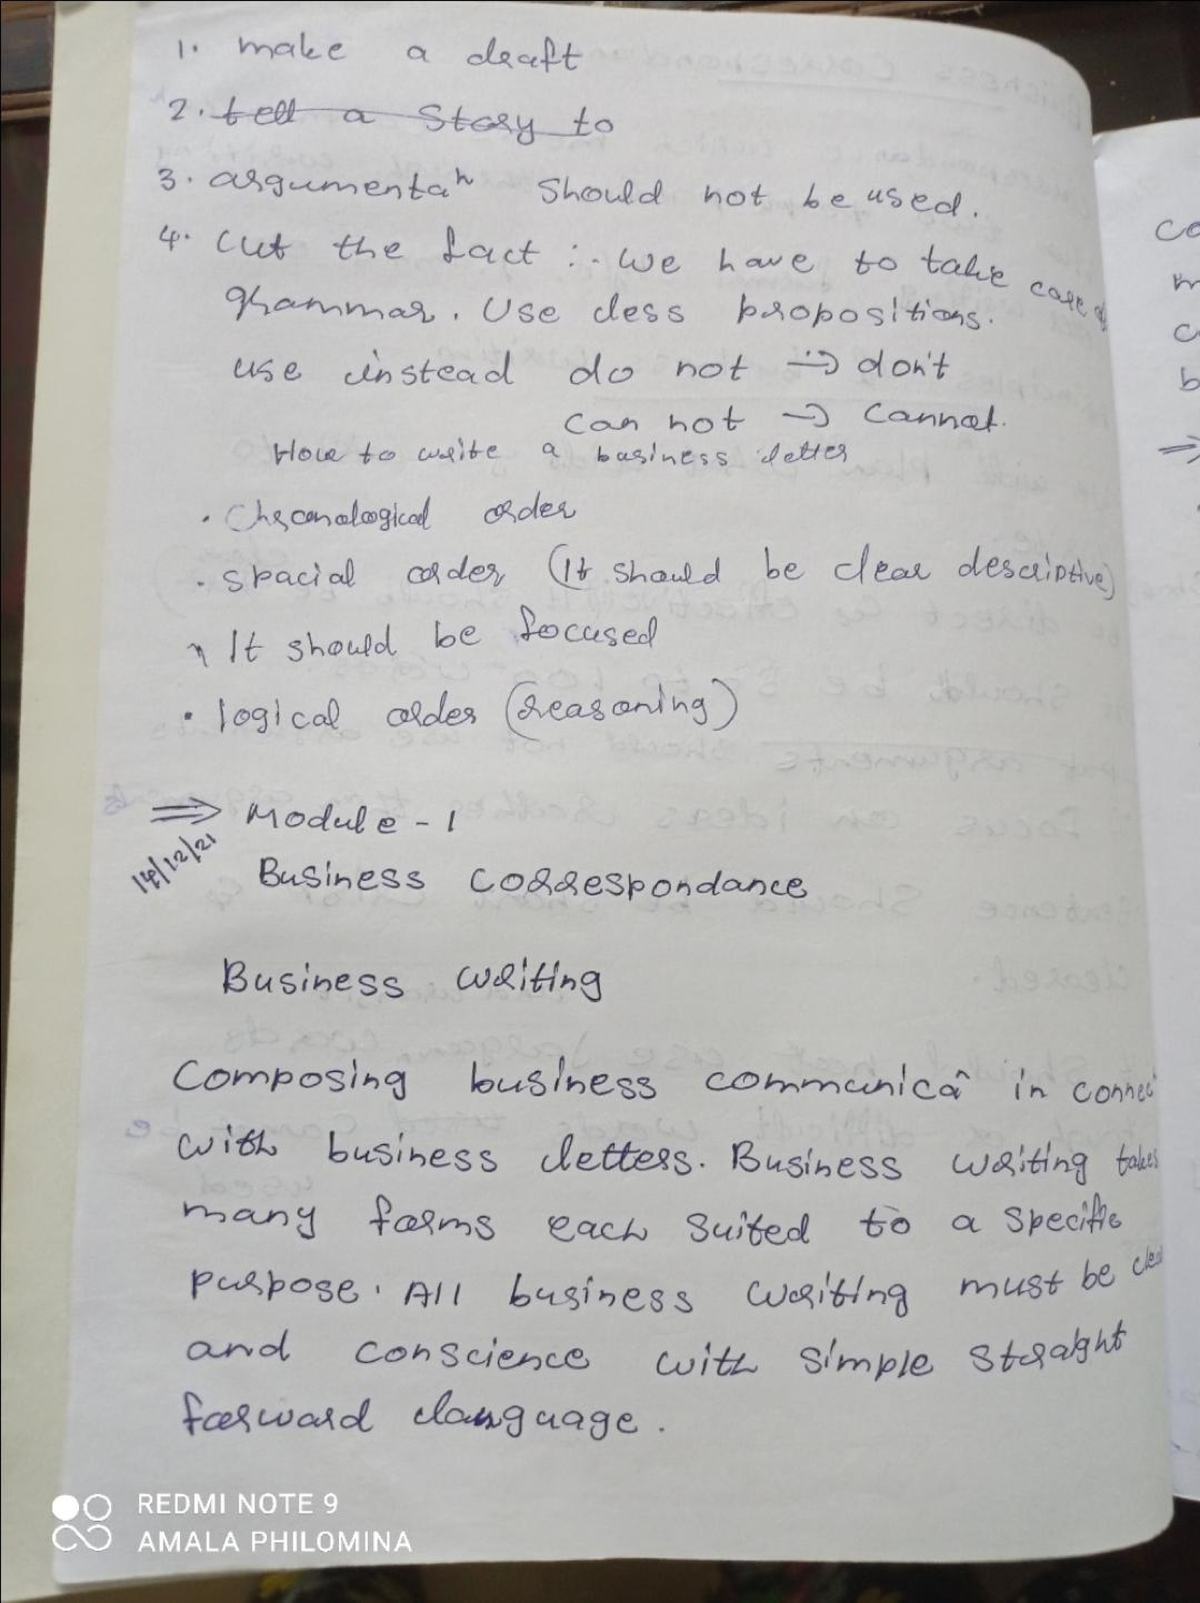 1. make a draft
2. tell a Story to
3. argumentaⁿ Should not be used.
4. Cut the fact :- we have to take care of
grammar. Use less propositions.
use instead do not → don't
can not → cannot.
How to write a business letter
• Chronological order
• Spacial order (It should be clear descriptive)
It should be focused
• logical order (reasoning)
⇒ Module - 1
14/12/21
Business correspondance
Business writing
Composing business communicâ in connec
with business letters. Business writing takes
many forms each suited to a specific
purpose. All business writing must be clea
and conscience with simple straight
forward language.
REDMI NOTE 9
AMALA PHILOMINA